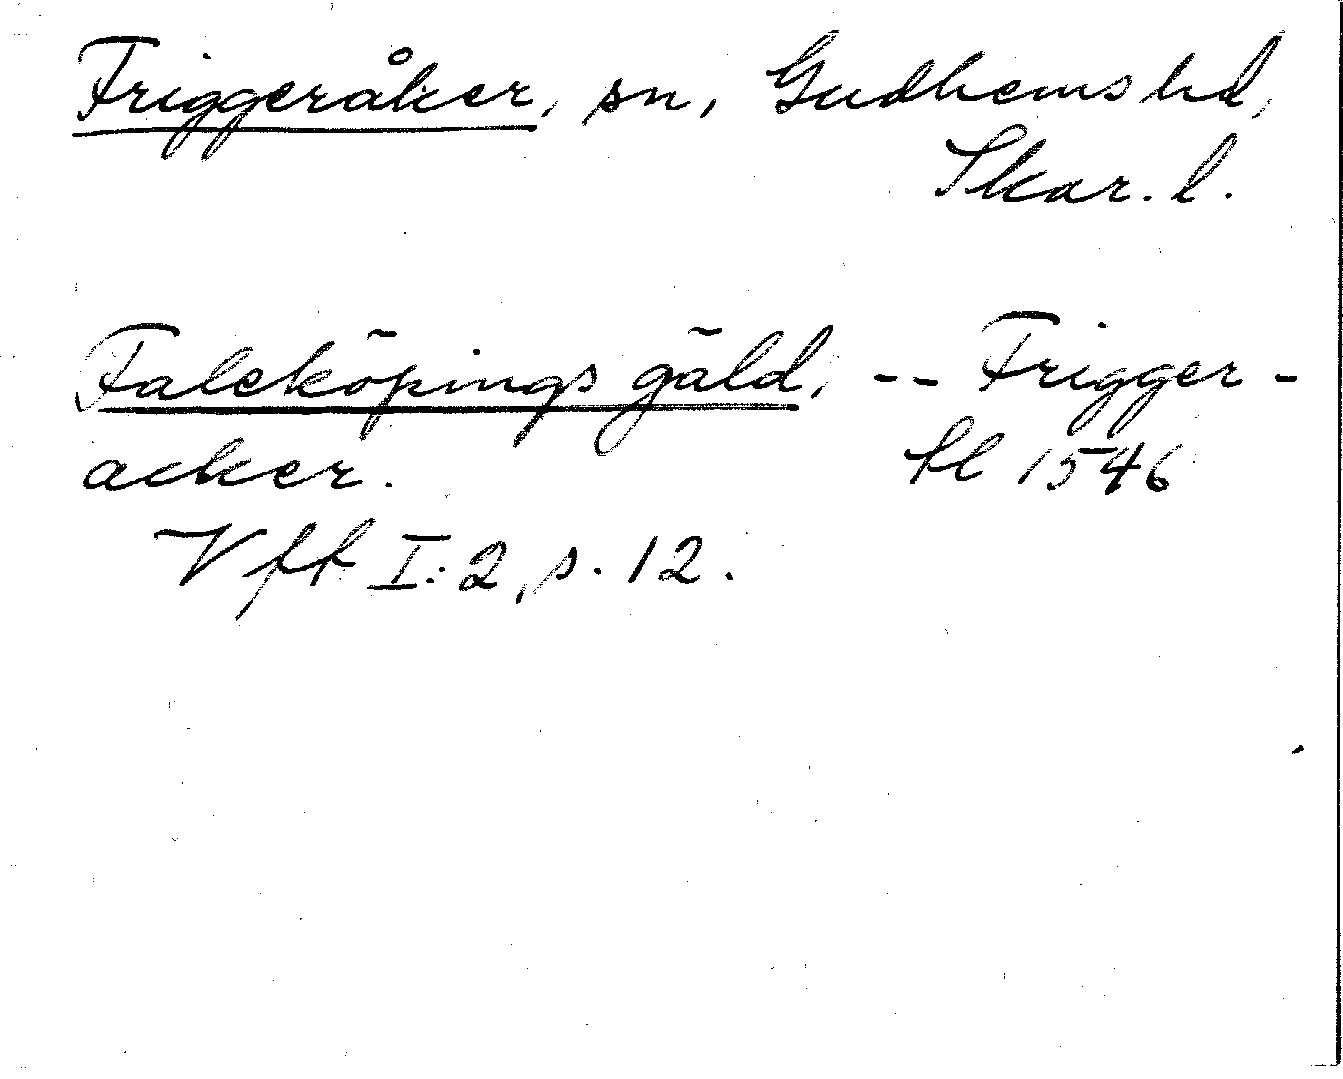 Friggeråker, sn, Gudhems hd,
Skar. l.
Falekõpings gãld, -- Frigger-
acker. Sl 1546
Vff I:2, s. 12.